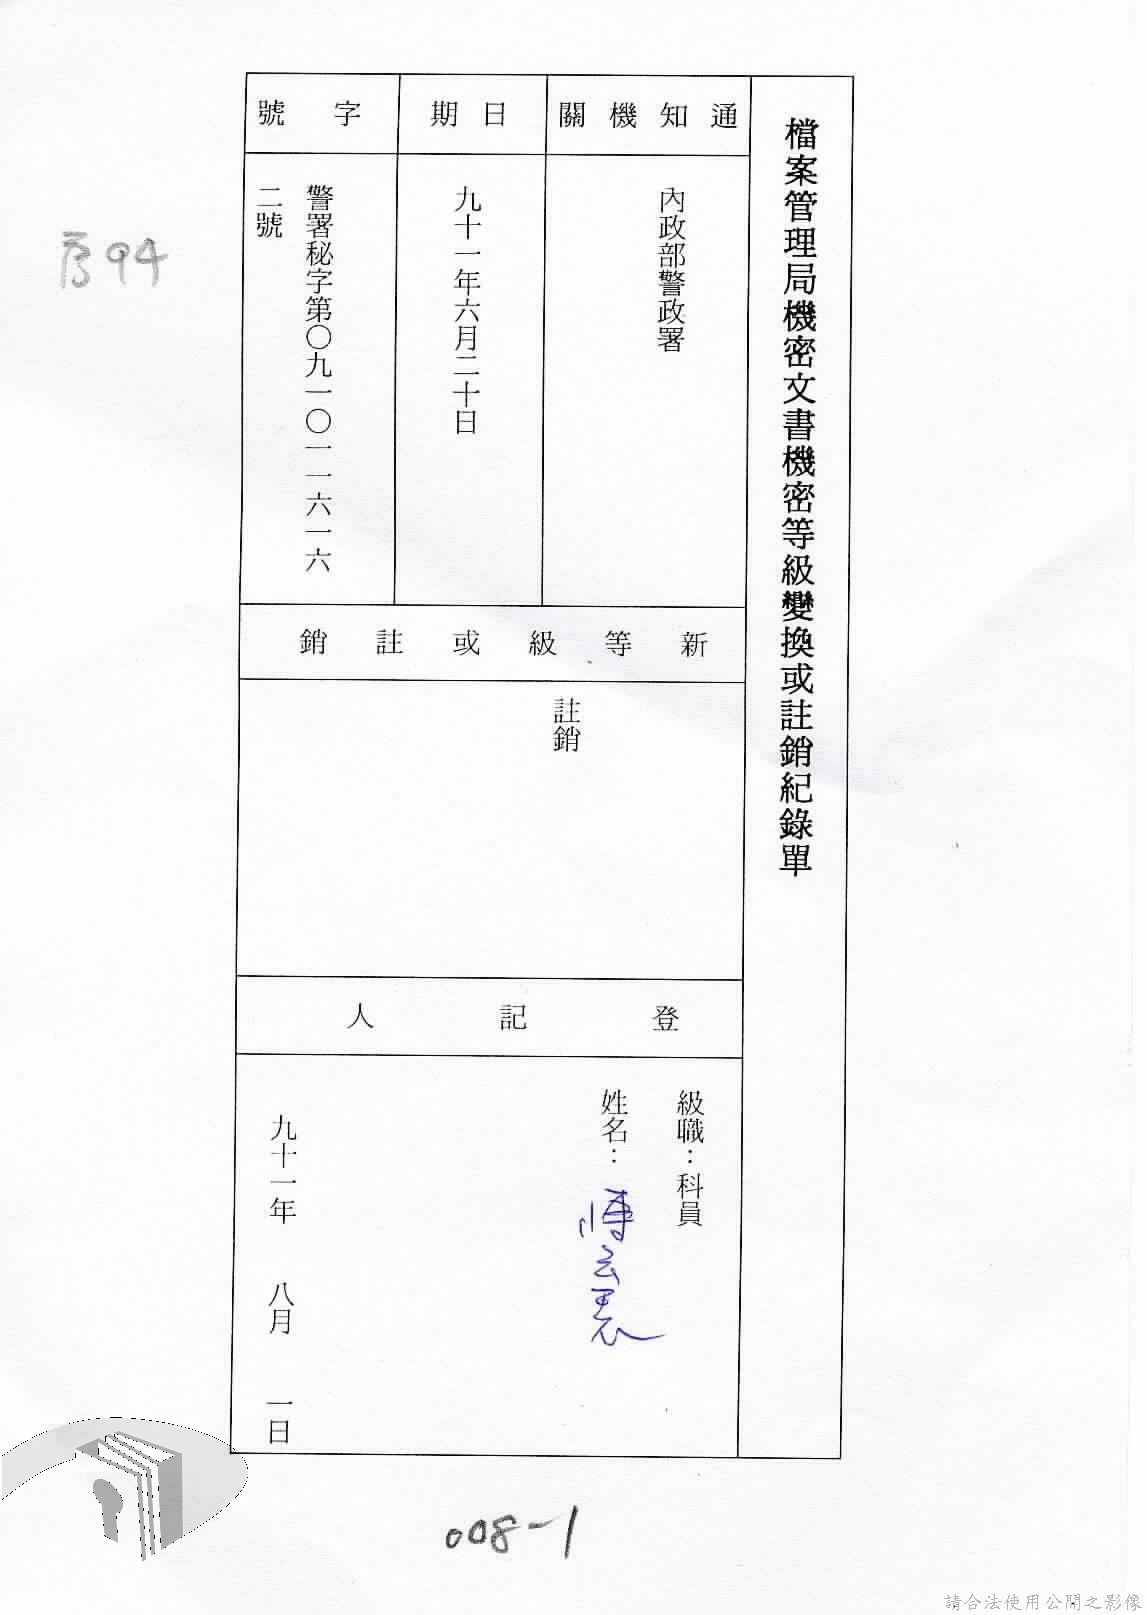 檔案管理局機密文書機密等級變換或註銷紀錄單
通知機關
內政部警政署
日期
九十一年六月二十日
字號
警署秘字第〇九一〇一一六一六
二號
新等級或註銷
註銷
登記人
級職：科員
姓名：
九十一年 八月 一日
94
008-1
請合法使用公開之影像